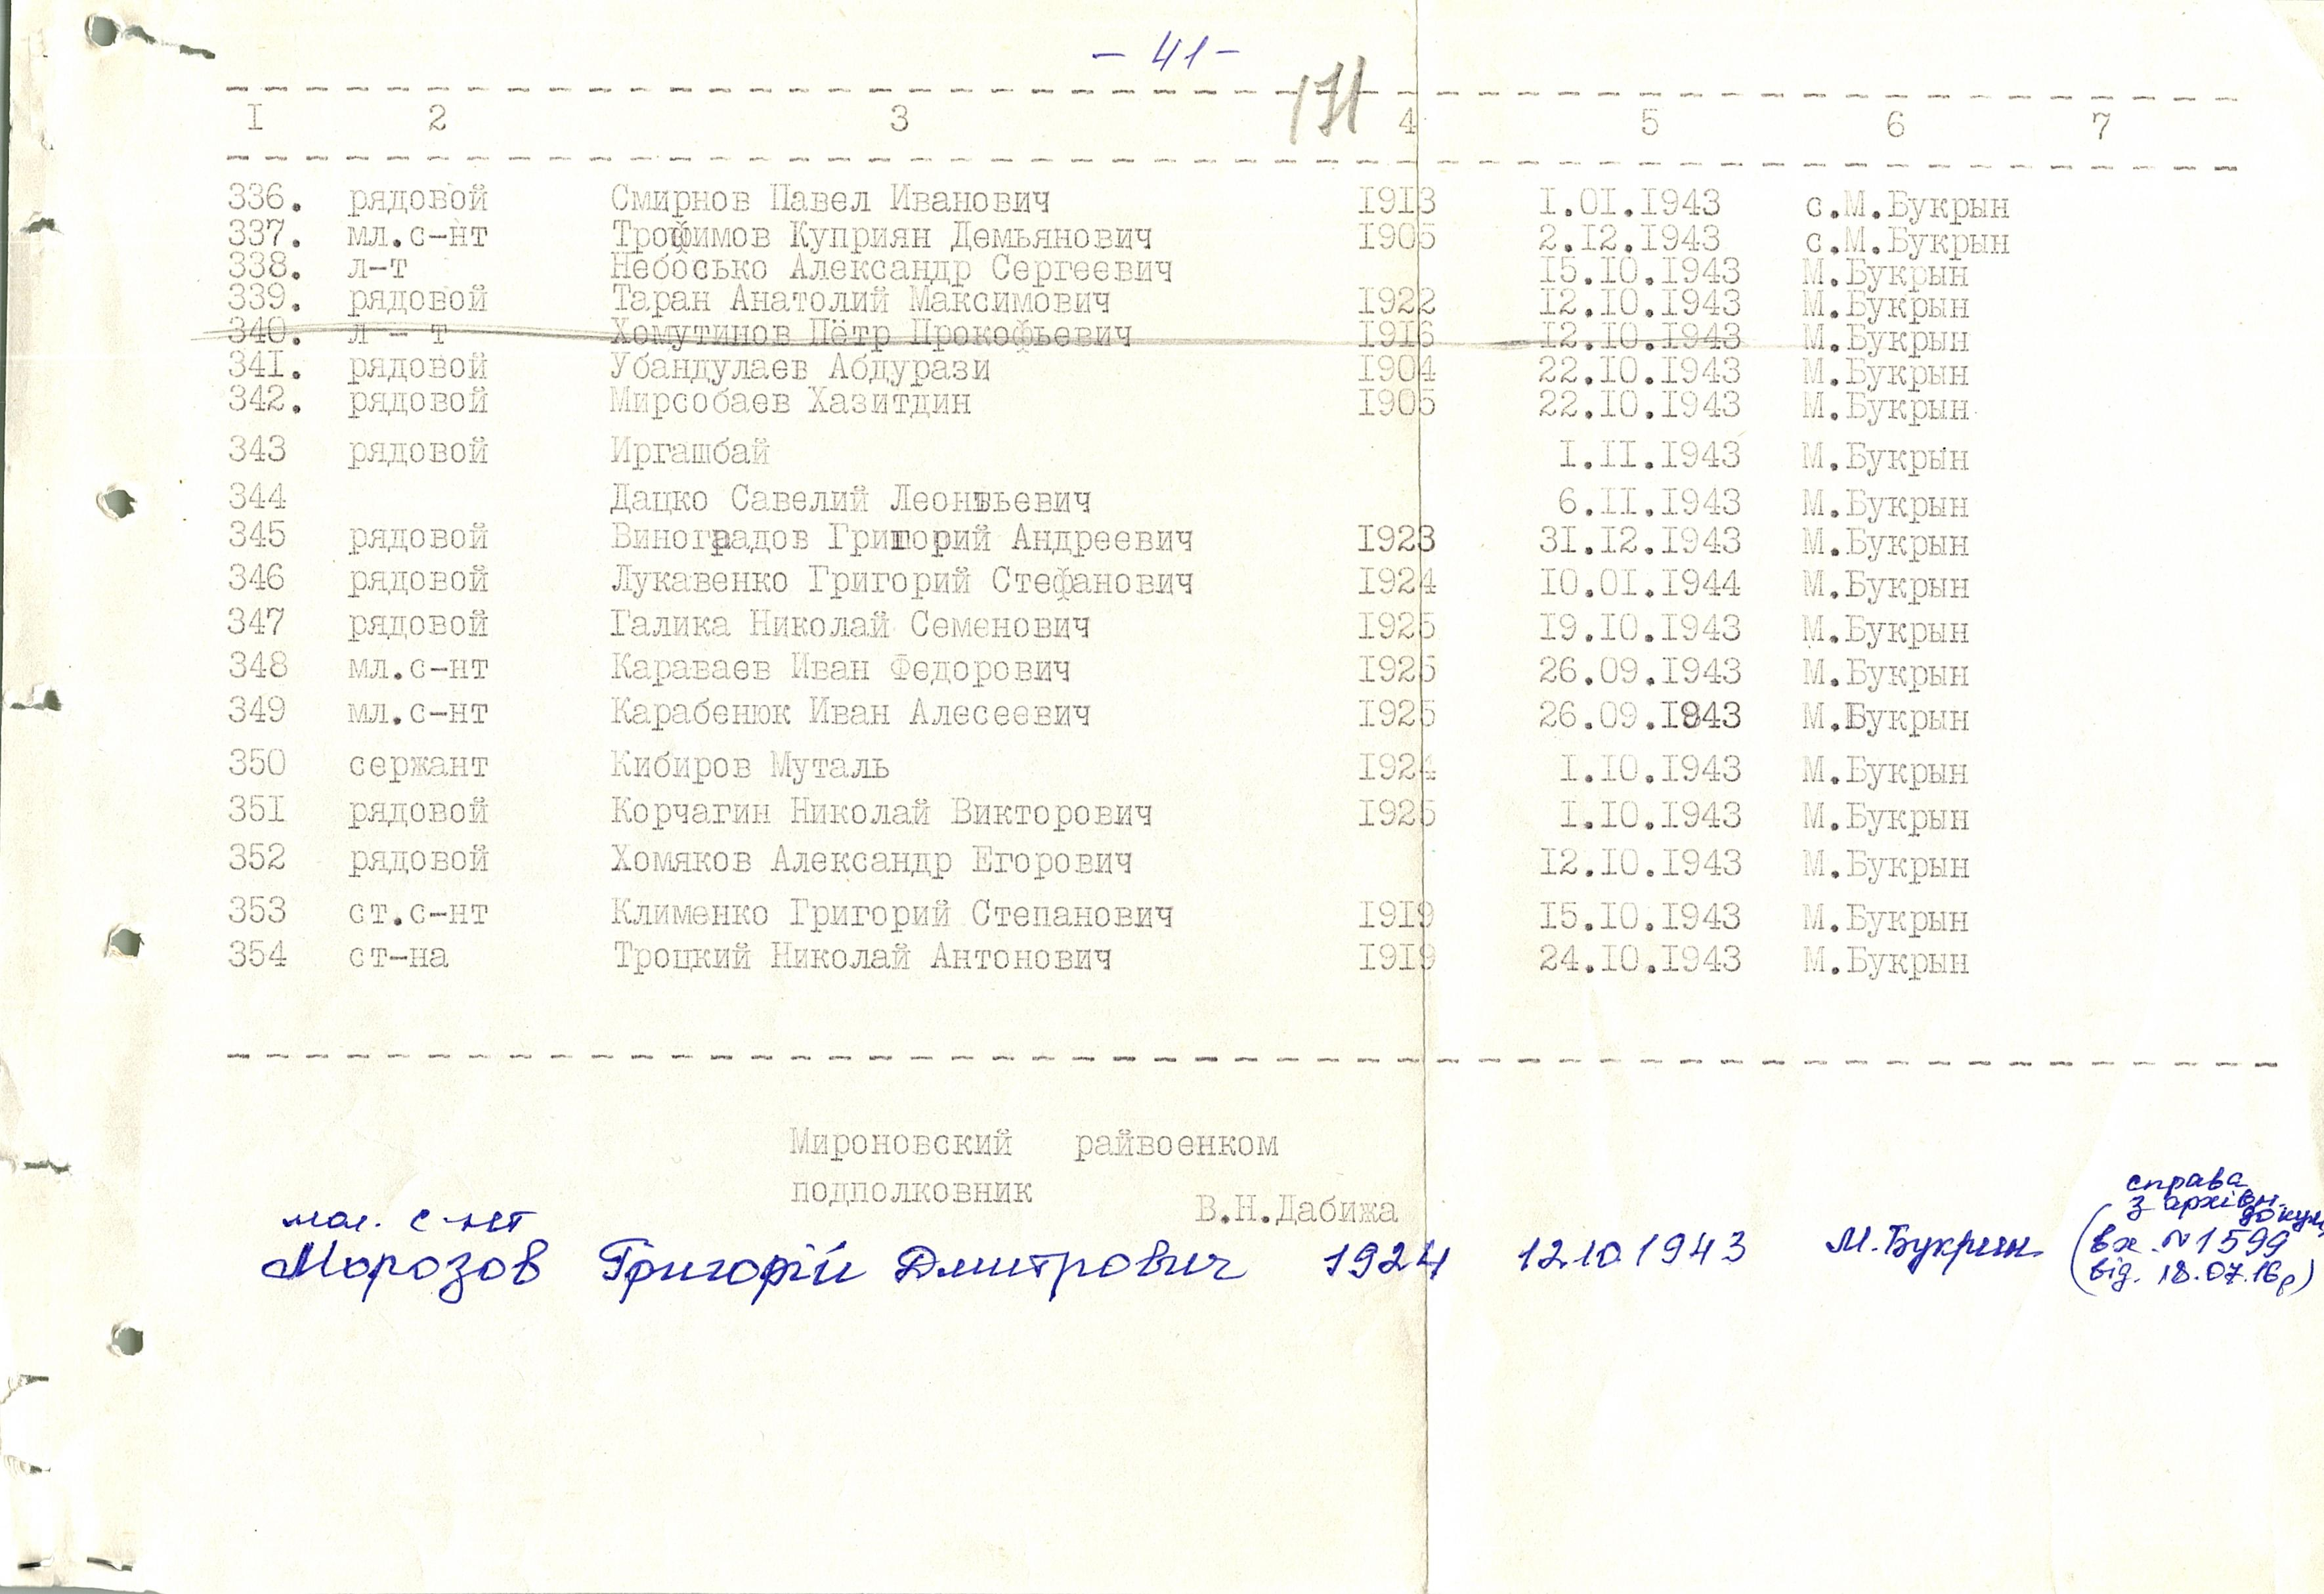 - 41-
171
I 2 3 4 5 6 7
336. рядовой Смирнов Павел Иванович 1913 I.OI.I943 с.М.Букрын
337. мл.с-нт Трофимов Куприян Демьянович I905 2.I2.I943 с.М.Букрын
338. л-т Небосько Александр Сергеевич I5.IO.I943 М.Букрын
339. рядовой Таран Анатолий Максимович I922 I2.IO.I943 М.Букрын
340. л - т Хомутинов Пётр Прокофьевич I9I6 I2.IO.I943 М.Букрын
34I. рядовой Убандулаев Абдурази I904 22.IO.I943 М.Букрын
342. рядовой Мирсобаев Хазитдин I905 22.IO.I943 М.Букрын
343 рядовой Иргашбай I.II.I943 М.Букрын
344 Дацко Савелий Леонтьевич 6.II.I943 М.Букрын
345 рядовой Виноградов Григорий Андреевич I923 3I.I2.I943 М.Букрын
346 рядовой Лукавенко Григорий Стефанович I924 IO.OI.I944 М.Букрын
347 рядовой Галика Николай Семенович I925 I9.IO.I943 М.Букрын
348 мл.с-нт Караваев Иван Федорович I925 26.09.I943 М.Букрын
349 мл.с-нт Карабенюк Иван Алесеевич I925 26.09.I943 М.Букрын
350 сержант Кибиров Муталь I924 I.IO.I943 М.Букрын
35I рядовой Корчагин Николай Викторович I925 I.IO.I943 М.Букрын
352 рядовой Хомяков Александр Егорович I2.IO.I943 М.Букрын
353 ст.с-нт Клименко Григорий Степанович I9I9 I5.IO.I943 М.Букрын
354 ст-на Троцкий Николай Антонович I9I9 24.IO.I943 М.Букрын
Мироновский райвоенком
подполковник
В.Н.Дабижа
мол. с-нт
Морозов Григорій Дмитрович 1924 12.10.1943 М.Букрин
справа
з архівн.
докум
(вх. №1599
від. 18.07.16р)